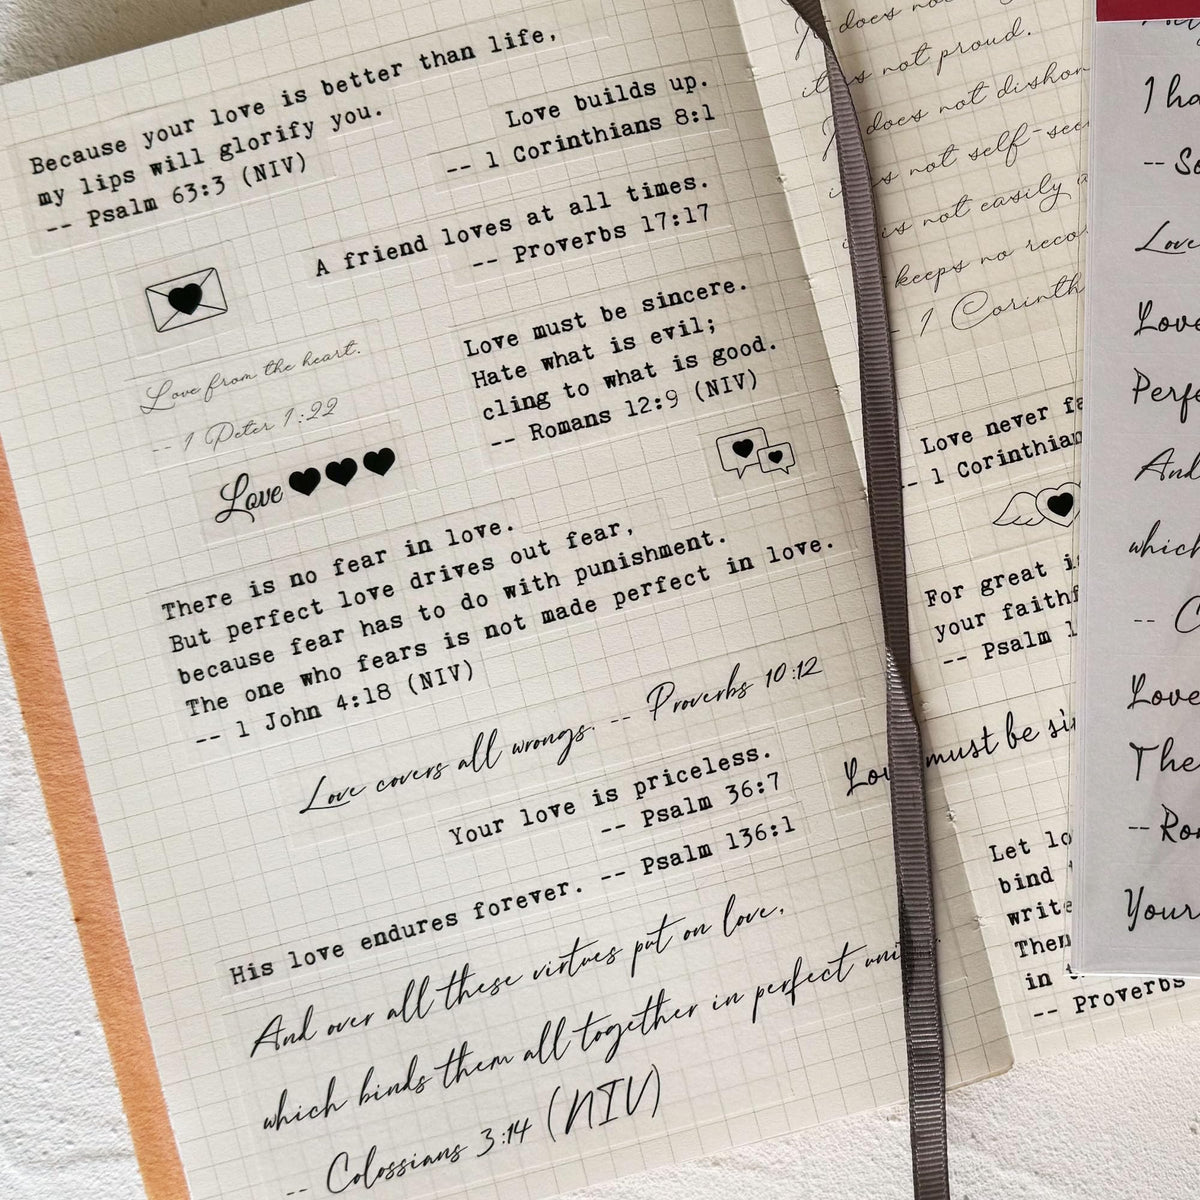 Because your love is better than life,
my lips will glorify you.
-- Psalm 63:3 (NIV)
Love builds up.
-- 1 Corinthians 8:1
A friend loves at all times.
-- Proverbs 17:17
Love from the heart.
-- 1 Peter 1:22
Love must be sincere.
Hate what is evil;
cling to what is good.
-- Romans 12:9 (NIV)
Love
There is no fear in love.
But perfect love drives out fear,
because fear has to do with punishment.
The one who fears is not made perfect in love.
-- 1 John 4:18 (NIV)
Love covers all wrongs. -- Proverbs 10:12
Your love is priceless.
-- Psalm 36:7
His love endures forever. -- Psalm 136:1
And over all these virtues put on love,
which binds them all together in perfect
-- Colossians 3:14 (NIV)
does
not proud.
does not
is not self-
is not easily
keeps no
- 1
Love never
-- 1
For great
your
-- Psalm
must be
Let
bind
in
-- Proverbs
I
--
Love
And
which
--
Love
--
Your